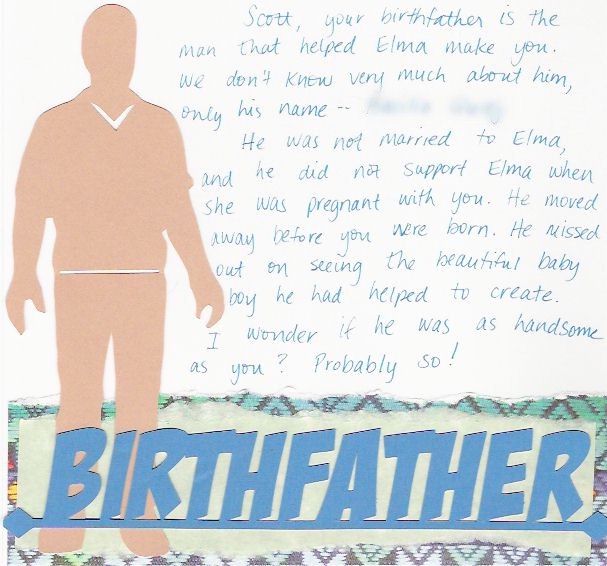 Scott, your birthfather is the
man that helped Elma make you.
We don't know very much about him,
only his name --
He was not married to Elma,
and he did not support Elma when
she was pregnant with you. He moved
away before you were born. He missed
out on seeing the beautiful baby
boy he had helped to create.
I wonder if he was as handsome
as you? Probably so!
BIRTHFATHER